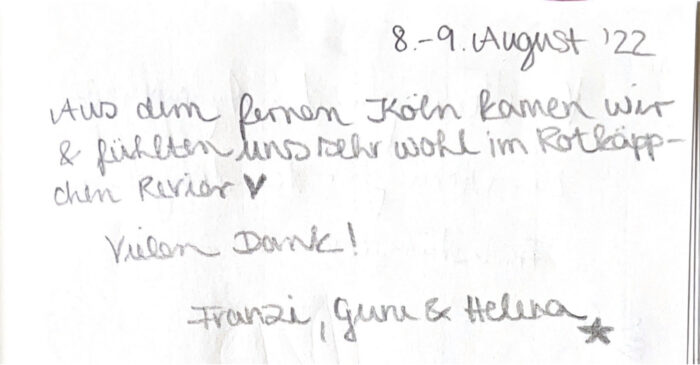 8.-9. August '22
Aus dem fernen Köln kamen wir
& fühlten uns sehr wohl im Rotkäpp-
chen Revier ♥
Vielen Dank!
Franzi, & Helena ★